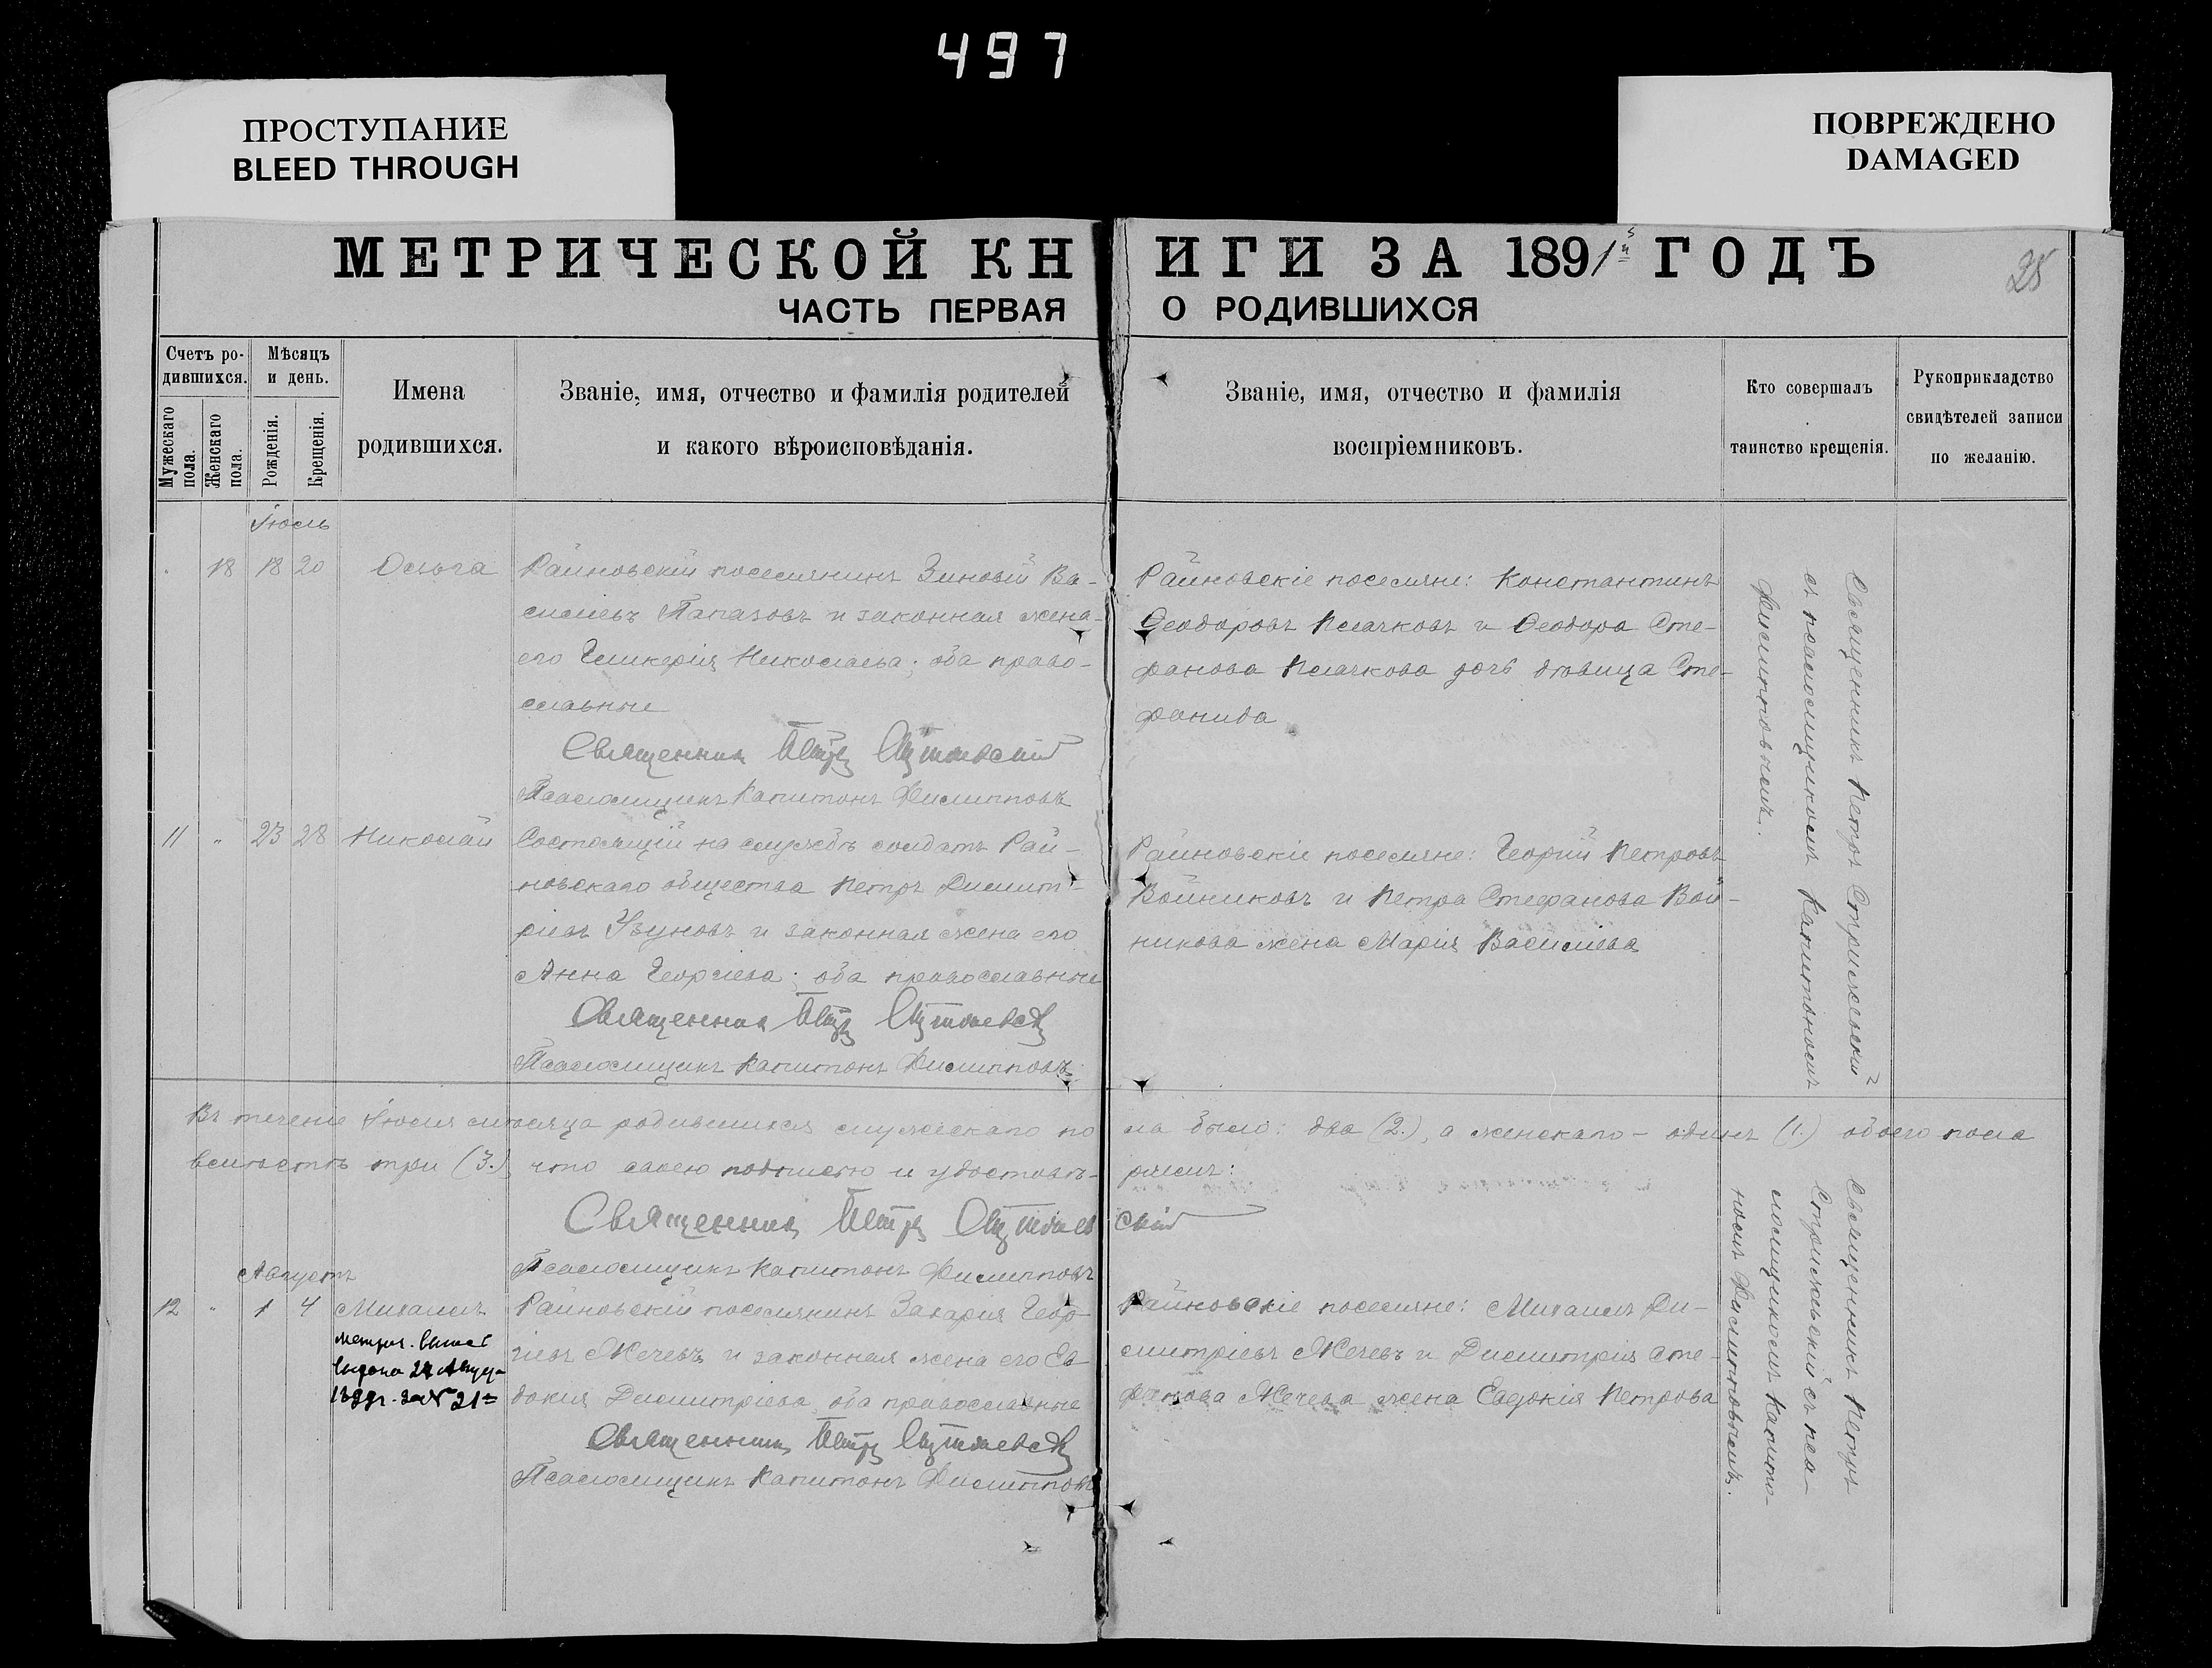 497
ПРОСТУПАНИЕ
BLEED THROUGH
ПОВРЕЖДЕНО
DAMAGED
МЕТРИЧЕСКОЙ КНИГИ ЗА 1891й ГОДЪ
28
ЧАСТЬ ПЕРВАЯ О РОДИВШИХСЯ
Счетъ ро-
дившихся.
Мужескаго
пола.
Женскаго
пола.
Мѣсяцъ
и день.
Рожденія.
Крещенія.
Имена
родившихся.
Званіе, имя, отчество и фамилія родителей
и какого вѣроисповѣданія.
Званіе, имя, отчество и фамилія
воспріемниковъ.
Кто совершалъ
таинство крещенія.
Рукоприкладство
свидѣтелей записи
по желанію.
Іюль
18 18 20 Ольга
Райновскій поселянинъ Зиновій Ва-
силіевъ Папазовъ и законная жена
его Гликерія Николаева; оба право-
славные
Священникъ Петръ
Псаломщикъ Капитонъ Филипповъ
Райновскіе поселяне: Константинъ
Ѳеодоровъ Плачковъ и Ѳеодора Сте-
фанова Плачкова дочь дѣвица Сте-
фанида
Священникъ Петръ
съ псаломщикомъ Капитономъ
Филипповымъ.
11 " 23 28 Николай
Состоящій на службѣ солдатъ Рай-
новскаго общества Петръ Димит-
ріевъ Узуновъ и законная жена его
Анна Георгіева; оба православные
Священникъ Петръ
Псаломщикъ Капитонъ Филипповъ
Райновскіе поселяне: Георгій Петровъ
Войниковъ и Петра Стефанова Вой-
никова жена Марія Василіева
Въ теченіе Іюля мѣсяца родившихся мужескаго пола было: два (2.), а женскаго – одинъ (1.) обоего пола
вмѣстѣ три (3.), что своею подписью и удостовѣ-
ряемъ:
Священникъ Петръ
Псаломщикъ Капитонъ Филипповъ
Августъ
12 " 1 4 Михаилъ
метрич. выпись
выдана 24
за № 21
Райновскій поселянинъ Захарія Геор-
гіевъ Жечевъ и законная жена его Ев-
докія Димитріева, оба православные
Священникъ Петръ
Псаломщикъ Капитонъ Филипповъ
Райновскіе поселяне: Михаилъ Ди-
митріевъ Жечевъ и Димитрія Сте-
фанова Жечева жена Евдокія Петрова
Священникъ Петръ
съ пса-
ломщикомъ Капито-
номъ Филипповымъ.